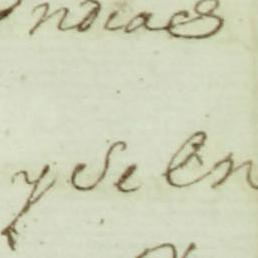 yndiaes
y Se en